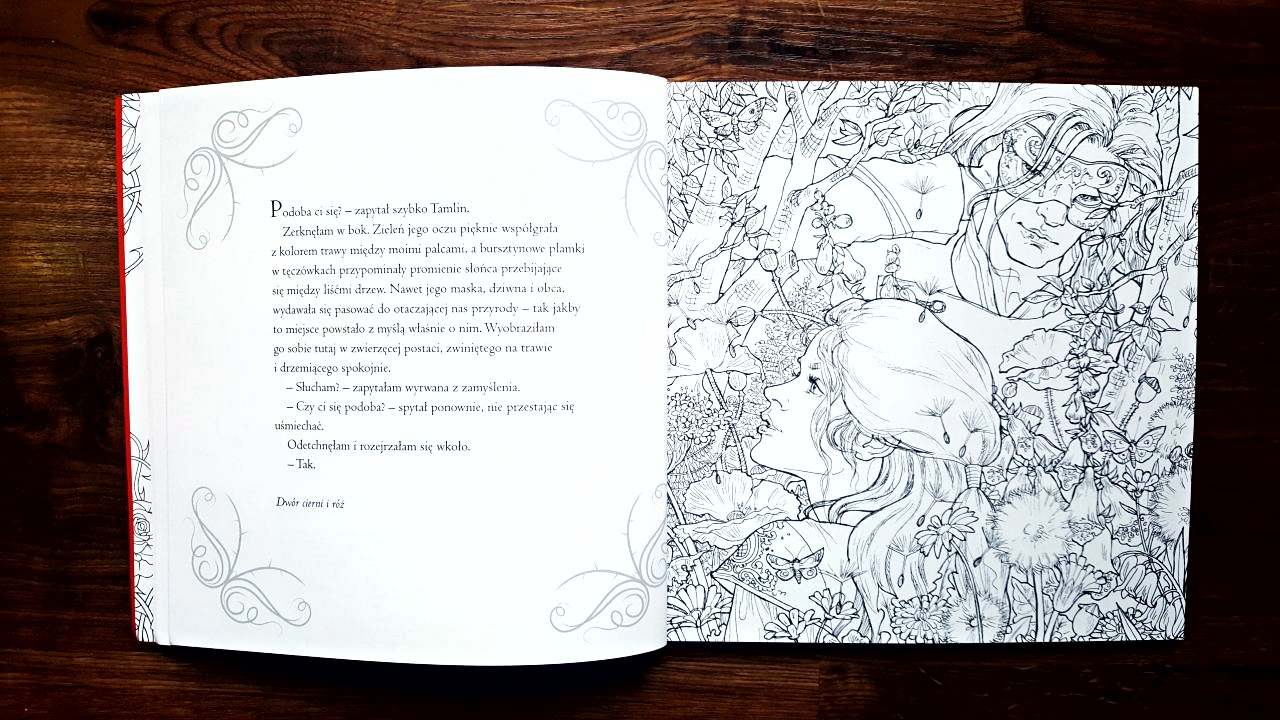 Podoba ci się? – zapytał szybko Tamlin.
Zerknęłam w bok. Zieleń jego oczu pięknie współgrała
z kolorem trawy między moimi palcami, a bursztynowe plamki
w tęczówkach przypominały promienie słońca przebijające
się między liśćmi drzew. Nawet jego maska, dziwna i obca,
wydawała się pasować do otaczającej nas przyrody – tak jakby
to miejsce powstało z myślą właśnie o nim. Wyobraziłam
go sobie tutaj w zwierzęcej postaci, zwiniętego na trawie
i drzemiącego spokojnie.
– Słucham? – zapytałam wyrwana z zamyślenia.
– Czy ci się podoba? – spytał ponownie, nie przestając się
uśmiechać.
Odetchnęłam i rozejrzałam się wkoło.
– Tak.
Dwór cierni i róż